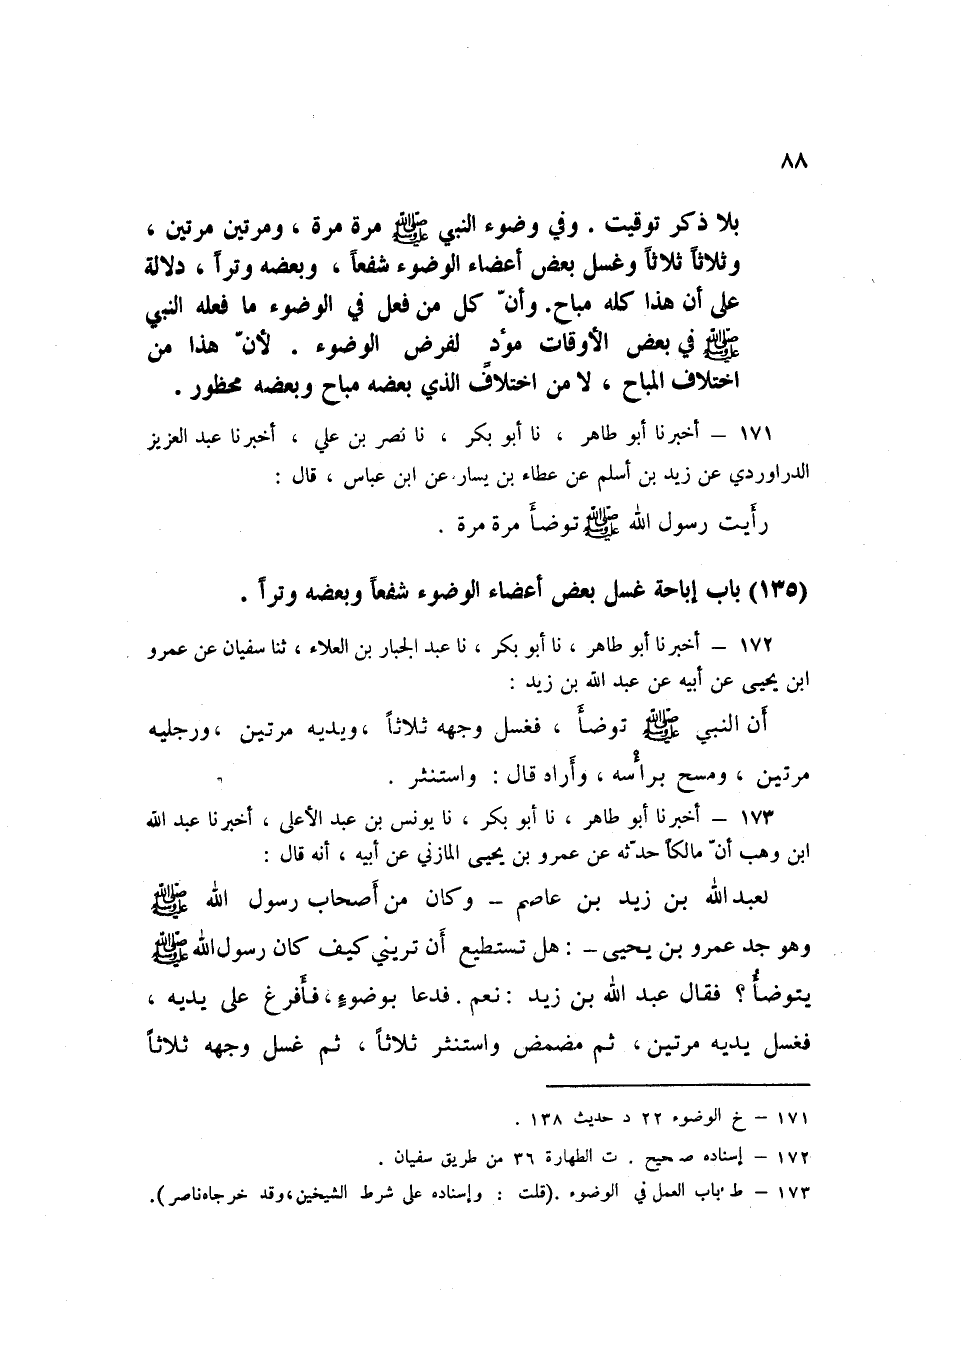 ٨٨
بلا ذكر توقيت . وفي وضوء النبي ﷺ مرة مرة ، ومرتين مرتين ،
وثلاثاً ثلاثاً وغسل بعض أعضاء الوضوء شفعاً ، وبعضه وتراً ، دلالة
على أن هذا كله مباح. وأنّ كل من فعل في الوضوء ما فعله النبي
ﷺ في بعض الأوقات مؤد لفرض الوضوء . لأنّ هذا من
اختلاف المباح ، لا من اختلاف الذي بعضه مباح وبعضه محظور .
١٧١ – أخبرنا أبو طاهر ، نا أبو بكر ، نا نصر بن علي ، أخبرنا عبد العزيز
الدراوردي عن زيد بن أسلم عن عطاء بن يسار عن ابن عباس ، قال :
رأيت رسول الله ﷺ توضأ مرة مرة .
(١٣٥) باب إباحة غسل بعض أعضاء الوضوء شفعاً وبعضه وتراً .
١٧٢ – أخبرنا أبو طاهر ، نا أبو بكر ، نا عبد الجبار بن العلاء ، ثنا سفيان عن عمرو
ابن يحيى عن أبيه عن عبد الله بن زيد :
أن النبي ﷺ توضأ ، فغسل وجهه ثلاثاً ،ويديه مرتين ،ورجليه
مرتين ، ومسح برأسه ، وأُراه قال : واستنثر .
١٧٣ – أخبرنا أبو طاهر ، نا أبو بكر ، نا يونس بن عبد الأعلى ، أخبرنا عبد الله
ابن وهب أنّ مالكاً حدّثه عن عمرو بن يحيى المازني عن أبيه ، أنه قال :
لعبد الله بن زيد بن عاصم – وكان من أصحاب رسول الله ﷺ
وهو جد عمرو بن يحيى – : هل تستطيع أن تريني كيف كان رسول الله ﷺ
يتوضأُ ؟ فقال عبد الله بن زيد : نعم . فدعا بوضوءٍ ، فأفرغ على يديه ،
فغسل يديه مرتين ، ثم مضمض واستنثر ثلاثاً ، ثم غسل وجهه ثلاثاً
١٧١ – خ الوضوء ٢٢ د حديث ١٣٨ .
١٧٢ – إسناده صحيح . ت الطهارة ٣٦ من طريق سفيان .
١٧٣ – ط باب العمل في الوضوء .(قلت : وإسناده على شرط الشيخين ،وقد خرجاه ناصر).